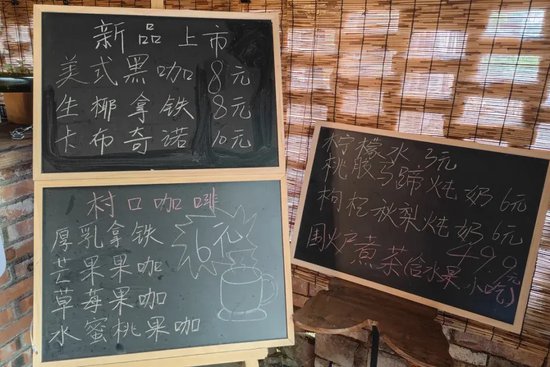 新品上市
美式黑咖 8元
生椰拿铁 8元
卡布奇诺 10元
村口咖啡
厚乳拿铁
6元
芒果果咖
草莓果咖
水蜜桃果咖
柠檬水 3元
桃胶马蹄炖奶 6元
枸杞秋梨炖奶 6元
围炉煮茶(含水果 小吃)
49.9元